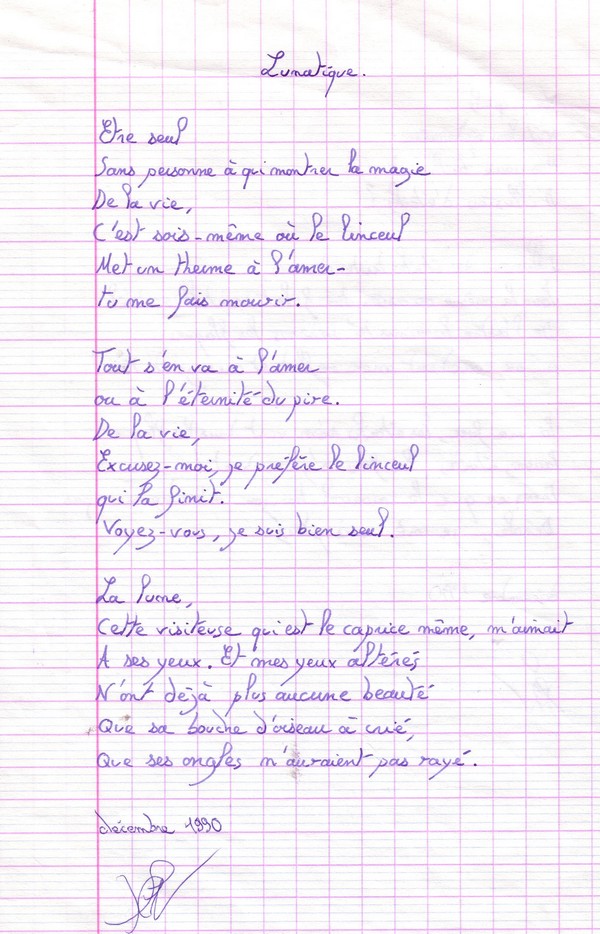 Lunatique.
Etre seul
Sans personne à qui montrer la magie
De la vie,
C'est sois-même où le linceul
Met un therme à l'amer-
tu me fais mourir.
Tout s'en va à l'amer
ou à l'éternité du pire.
De la vie,
Excusez-moi, je préfère le linceul
qui la finit.
Voyez-vous, je suis bien seul.
La lune,
Cette visiteuse qui est le caprice même, m'aimait
A ses yeux. Et mes yeux altérés
N'ont déjà plus aucune beauté
Que sa bouche d'oiseau a crié,
Que ses ongles n'auraient pas rayé.
décembre 1990